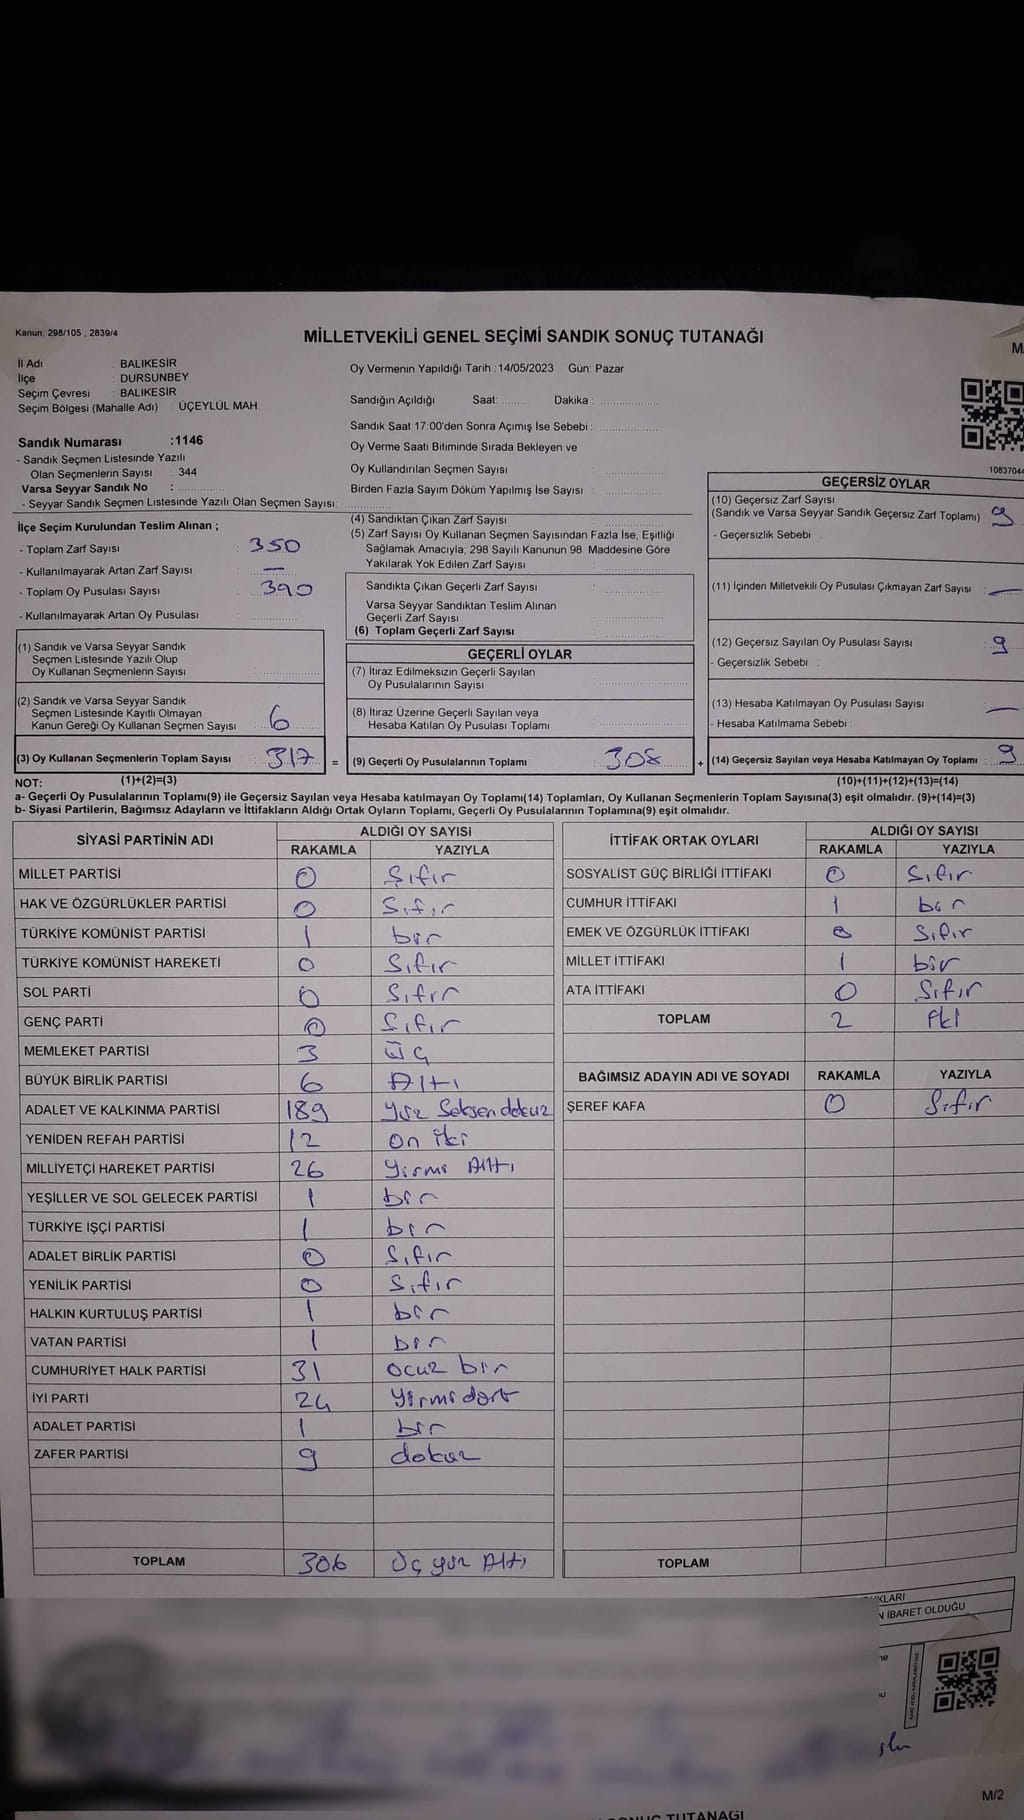 Kanun: 298/105 , 2839/4
MİLLETVEKİLİ GENEL SEÇİMİ SANDIK SONUÇ TUTANAĞI
İl Adı : BALIKESİR
İlçe : DURSUNBEY
Seçim Çevresi : BALIKESİR
Seçim Bölgesi (Mahalle Adı) : ÜÇEYLÜL MAH.
Sandık Numarası :1146
- Sandık Seçmen Listesinde Yazılı
Olan Seçmenlerin Sayısı : 344
Varsa Seyyar Sandık No :
- Seyyar Sandık Seçmen Listesinde Yazılı Olan Seçmen Sayısı:
İlçe Seçim Kurulundan Teslim Alınan ;
- Toplam Zarf Sayısı : 350
- Kullanılmayarak Artan Zarf Sayısı : —
- Toplam Oy Pusulası Sayısı : 390
- Kullanılmayarak Artan Oy Pusulası :
(1) Sandık ve Varsa Seyyar Sandık
Seçmen Listesinde Yazılı Olup
Oy Kullanan Seçmenlerin Sayısı :
(2) Sandık ve Varsa Seyyar Sandık
Seçmen Listesinde Kayıtlı Olmayan
Kanun Gereği Oy Kullanan Seçmen Sayısı : 6
(3) Oy Kullanan Seçmenlerin Toplam Sayısı : 317 =
Oy Vermenin Yapıldığı Tarih :14/05/2023 Gün: Pazar
Sandığın Açıldığı Saat: Dakika :
Sandık Saat 17:00'den Sonra Açımış İse Sebebi :
Oy Verme Saati Bitiminde Sırada Bekleyen ve
Oy Kullandırılan Seçmen Sayısı :
Birden Fazla Sayım Döküm Yapılmış İse Sayısı :
(4) Sandıktan Çıkan Zarf Sayısı :
(5) Zarf Sayısı Oy Kullanan Seçmen Sayısından Fazla İse, Eşitliği
Sağlamak Amacıyla, 298 Sayılı Kanunun 98. Maddesine Göre
Yakılarak Yok Edilen Zarf Sayısı :
Sandıkta Çıkan Geçerli Zarf Sayısı :
Varsa Seyyar Sandıktan Teslim Alınan
Geçerli Zarf Sayısı :
(6) Toplam Geçerli Zarf Sayısı :
GEÇERLİ OYLAR
(7) İtiraz Edilmeksizin Geçerli Sayılan
Oy Pusulalarının Sayısı :
(8) İtiraz Üzerine Geçerli Sayılan veya
Hesaba Katılan Oy Pusulası Toplamı :
(9) Geçerli Oy Pusulalarının Toplamı : 308 +
1083704
GEÇERSİZ OYLAR
(10) Geçersiz Zarf Sayısı
(Sandık ve Varsa Seyyar Sandık Geçersiz Zarf Toplamı) : 9
- Geçersizlik Sebebi :
(11) İçinden Milletvekili Oy Pusulası Çıkmayan Zarf Sayısı : —
(12) Geçersiz Sayılan Oy Pusulası Sayısı : 9
- Geçersizlik Sebebi :
(13) Hesaba Katılmayan Oy Pusulası Sayısı : —
- Hesaba Katılmama Sebebi :
(14) Geçersiz Sayılan veya Hesaba Katılmayan Oy Toplamı : 9
NOT: (1)+(2)=(3) (10)+(11)+(12)+(13)=(14)
a- Geçerli Oy Pusulalarının Toplamı(9) ile Geçersiz Sayılan veya Hesaba katılmayan Oy Toplamı(14) Toplamları, Oy Kullanan Seçmenlerin Toplam Sayısına(3) eşit olmalıdır. (9)+(14)=(3)
b- Siyasi Partilerin, Bağımsız Adayların ve İttifakların Aldığı Ortak Oyların Toplamı, Geçerli Oy Pusulalarının Toplamına(9) eşit olmalıdır.
SİYASİ PARTİNİN ADI ALDIĞI OY SAYISI
RAKAMLA YAZIYLA
MİLLET PARTİSİ 0 Sıfır
HAK VE ÖZGÜRLÜKLER PARTİSİ 0 Sıfır
TÜRKİYE KOMÜNİST PARTİSİ 1 bir
TÜRKİYE KOMÜNİST HAREKETİ 0 Sıfır
SOL PARTİ 0 Sıfır
GENÇ PARTİ 0 Sıfır
MEMLEKET PARTİSİ 3 Üç
BÜYÜK BİRLİK PARTİSİ 6 Altı
ADALET VE KALKINMA PARTİSİ 189 Yüz Seksen dokuz
YENİDEN REFAH PARTİSİ 12 on iki
MİLLİYETÇİ HAREKET PARTİSİ 26 Yirmi Altı
YEŞİLLER VE SOL GELECEK PARTİSİ 1 bir
TÜRKİYE İŞÇİ PARTİSİ 1 bir
ADALET BİRLİK PARTİSİ 0 Sıfır
YENİLİK PARTİSİ 0 Sıfır
HALKIN KURTULUŞ PARTİSİ 1 bir
VATAN PARTİSİ 1 bir
CUMHURİYET HALK PARTİSİ 31 ocuz bin
İYİ PARTİ 24 Yirmi dört
ADALET PARTİSİ 1 bir
ZAFER PARTİSİ 9 dokuz
TOPLAM 306 Üç yüz Altı
İTTİFAK ORTAK OYLARI ALDIĞI OY SAYISI
RAKAMLA YAZIYLA
SOSYALİST GÜÇ BİRLİĞİ İTTİFAKI 0 Sıfır
CUMHUR İTTİFAKI 1 bir
EMEK VE ÖZGÜRLÜK İTTİFAKI 0 Sıfır
MİLLET İTTİFAKI 1 bir
ATA İTTİFAKI 0 Sıfır
TOPLAM 2 İki
BAĞIMSIZ ADAYIN ADI VE SOYADI RAKAMLA YAZIYLA
ŞEREF KAFA 0 Sıfır
TOPLAM
N İBARET OLDUĞU
M/2